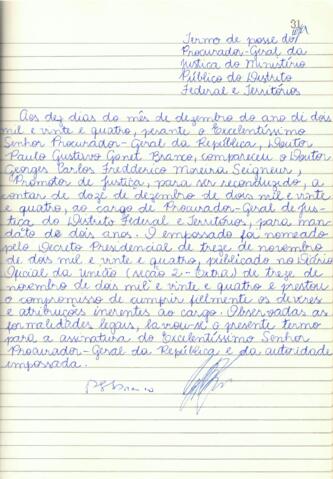 31
Termo de posse do
Procurador-Geral da
Justiça do Ministério
Público do Distrito
Federal e Territórios
Aos dez dias do mês de dezembro do ano de dois
mil e vinte e quatro, perante o Excelentíssimo
Senhor Procurador-Geral da República, Doutor
Paulo Gustavo Gonet Branco, compareceu o Doutor
Georges Carlos Fredderico Moreira Seigneur,
Promotor de Justiça, para ser reconduzido, a
contar de doze de dezembro de dois mil e vinte
e quatro, ao cargo de Procurador-Geral de Jus-
tiça do Distrito Federal e Territórios, para man-
dato de dois anos. O empossado foi nomeado
pelo Decreto Presidencial de treze de novembro
de dois mil e vinte e quatro, publicado no Diário
Oficial da União (seção 2-Extra) de treze de
novembro de dois mil e vinte e quatro e prestou
o compromisso de cumprir fielmente os deveres
e atribuições inerentes ao cargo. Observadas as
formalidades legais, lavrou-se o presente termo
para a assinatura do Excelentíssimo Senhor
Procurador-Geral da República e da autoridade
empossada.